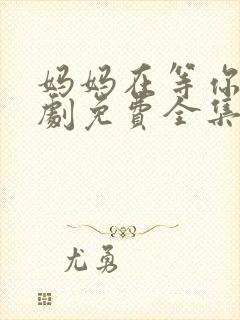 妈妈在等你
劇免費全集
尤勇